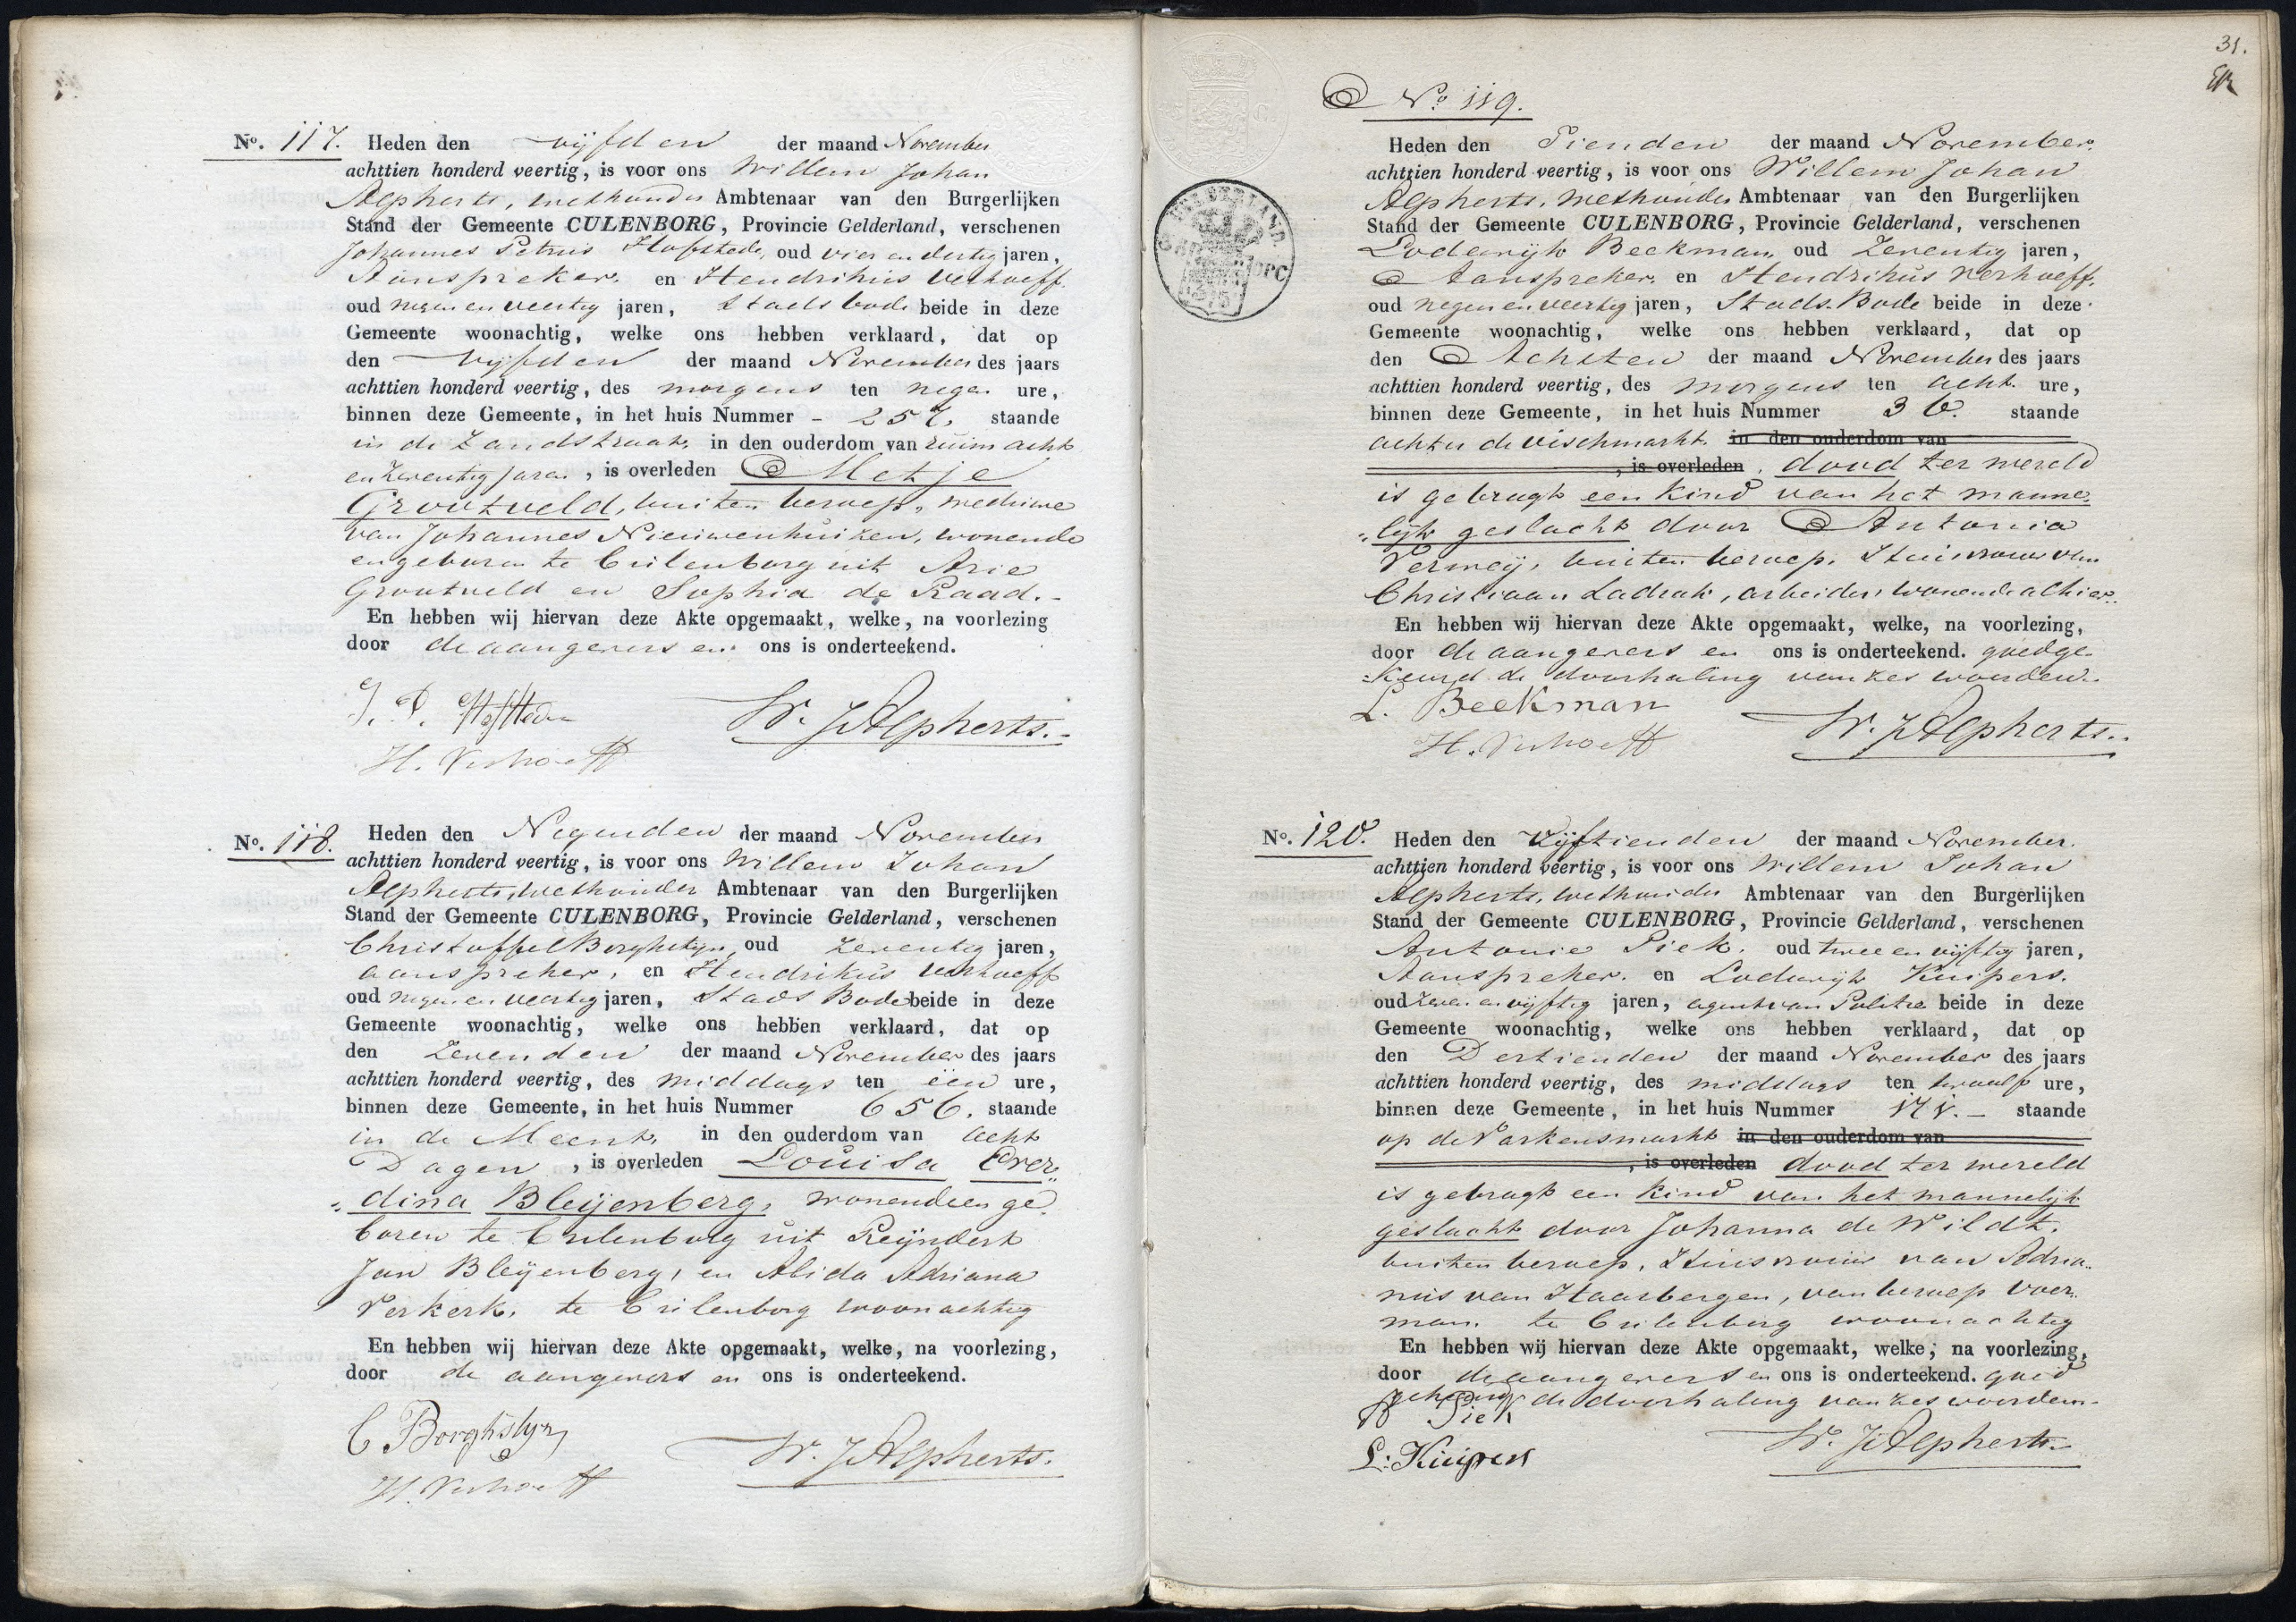 No. 117. Heden den vijfden der maand November
achttien honderd veertig, is voor ons Willem Johan
Alpherts, wethouder Ambtenaar van den Burgerlijken
Stand der Gemeente CULENBORG, Provincie Gelderland, verschenen
Johannes Petrus Hofstede, oud vier en dertig jaren,
Aanspreker, en Hendrikus Verhoeff.
oud negen en veertig jaren, Stads bode beide in deze
Gemeente woonachtig, welke ons hebben verklaard, dat op
den vijfden der maand November des jaars
achttien honderd veertig, des morgens ten negen ure,
binnen deze Gemeente, in het huis Nummer - 257, staande
in de Zandstraat, in den ouderdom van ruim acht
en zeventig jaren, is overleden Metje
Grootveld, buiten beroep, weduwe
van Johannes Nieuwenhuizen, wonende
en geboren te Culenborg uit Arie
Grootveld en Sophia de Raad.-
En hebben wij hiervan deze Akte opgemaakt, welke, na voorlezing
door de aangevers en ons is onderteekend.
J. P. Hofstede
W. J Alpherts.-
H. Verhoeff
No. 118. Heden den Negenden der maand November
achttien honderd veertig, is voor ons Willem Johan
Alpherts, wethouder Ambtenaar van den Burgerlijken
Stand der Gemeente CULENBORG, Provincie Gelderland, verschenen
Christoffel Borghstijn, oud zeventig jaren,
aanspreker, en Hendrikus Verhoeff
oud negen en veertig jaren, Stads Bode beide in deze
Gemeente woonachtig, welke ons hebben verklaard, dat op
den Zevenden der maand November des jaars
achttien honderd veertig, des middags ten één ure,
binnen deze Gemeente, in het huis Nummer 656, staande
in de Meent, in den ouderdom van acht
Dagen, is overleden Louisa Ever„
„dina Bleijenberg, wonende en ge„
boren te Culenborg uit Reijndert
Jan Bleijenberg, en Alida Adriana
Verkerk, te Culenborg woonachtig
En hebben wij hiervan deze Akte opgemaakt, welke, na voorlezing,
door de aangevers en ons is onderteekend.
C Borghstyn
W. J Alpherts.
H. Verhoeff
31.
No. 119.
Heden den Tienden der maand November
achttien honderd veertig, is voor ons Willem Johan
Alpherts, wethouder Ambtenaar van den Burgerlijken
Stand der Gemeente CULENBORG, Provincie Gelderland, verschenen
Lodewijk Beekman, oud Zeventig jaren,
Aanspreker, en Hendrikus Verhoeff.
oud negen en veertig jaren, Stads Bode beide in deze
Gemeente woonachtig, welke ons hebben verklaard, dat op
den Achtsten der maand November des jaars
achttien honderd veertig, des morgens ten acht ure,
binnen deze Gemeente, in het huis Nummer 36. staande
achter de vischmarkt. in den ouderdom van
, is overleden. dood ter wereld
is gebragt een kind van het manne„
„lijk geslacht door Antonia
Vermeij, buiten beroep, Huisvrouw van
Christiaan Ladrak, arbeider, wonende alhier.
En hebben wij hiervan deze Akte opgemaakt, welke, na voorlezing,
door de aangevers en ons is onderteekend. goedge-
keurd de doorhaling van zes woorden.
L. Beekman
W. J Alpherts..
H. Verhoeff
No. 120. Heden den Vijftienden der maand November.
achttien honderd veertig, is voor ons Willem Johan
Alpherts, wethouder Ambtenaar van den Burgerlijken
Stand der Gemeente CULENBORG, Provincie Gelderland, verschenen
Antonie Piek. oud twee en vijftig jaren,
Aanspreker. en Lodewijk Kuipers.
oud zeven en vijftig jaren, agent van Politie beide in deze
Gemeente woonachtig, welke ons hebben verklaard, dat op
den Dertienden der maand November des jaars
achttien honderd veertig, des middags ten twaalf ure,
binnen deze Gemeente, in het huis Nummer 171.- staande
op de Varkensmarkt in den ouderdom van
, is overleden dood ter wereld
is gebragt een kind van het mannelijk
geslacht door Johanna de Wildt,
buiten beroep, Huisvrouw van Adria„
nus van Haarbergen, van beroep Voer„
man. te Culenborg woonachtig
En hebben wij hiervan deze Akte opgemaakt, welke, na voorlezing,
door de aangevers en ons is onderteekend. goed
gekeurd de doorhaling van zes woorden.
A Piek
W. J Alpherts.
L: Kuipers